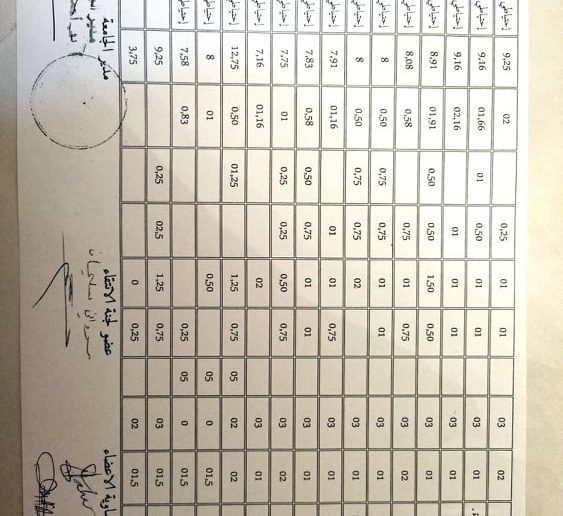 إحتياطي 9,25 02 0,25 01 01 03 02
إحتياطي 9,16 01,66 01 0,50 01 01 03 01
إحتياطي 9,16 02,16 01 01 01 03 01
إحتياطي 8,91 01,91 0,50 0,50 1,50 0,50 03 01
إحتياطي 8,08 0,58 0,75 01 0,75 03 01
إحتياطي 8 0,50 0,75 0,75 01 01 03 01
إحتياطي 8 0,50 0,75 02 03 01
إحتياطي 7,91 01,16 01 01 0,75 03 01
إحتياطي 7,83 0,58 0,50 0,75 01 01 03 01
إحتياطي 7,75 01 0,25 0,25 0,50 0,75 03 02
إحتياطي 7,16 01,16 02 03 01
إحتياطي 12,75 0,50 01,25 1,25 0,75 05 02 02
إحتياطي 8 01 0,50 05 0 01,5
إحتياطي 7,58 0,83 0,25 05 0 01,5
9,25 0,25 02,5 1,25 0,75 03 01,5
3,75 0 0,25 02 01,5
الأعضاء
عضو لجنة الانتقاء
مدير الجامعة